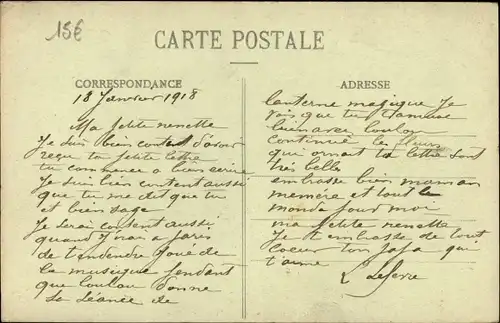 15€
CARTE POSTALE
CORRESPONDANCE
18 Janvier 1918
Ma petite nenette
Je suis bien content d'avoir
reçu ta petite lettre
tu commence a bien écrire
Je suis bien content aussi
que tu me dit que tu
et bien sage
Je serai content aussi
quand J'irai a
de t'entendre Joué de
la musique pendant
que loulou donne
sa séance de
ADRESSE
lanterne magique Je
vois que tu t'amuse
bien avec loulou
continue les fleurs
qui ornait ta lettre sont
très belles
embrasse bien maman
memere et tout le
monde pour moi
ma petite nenette
Je t'embrasse de tout
coeur ton papa qui
t'aime